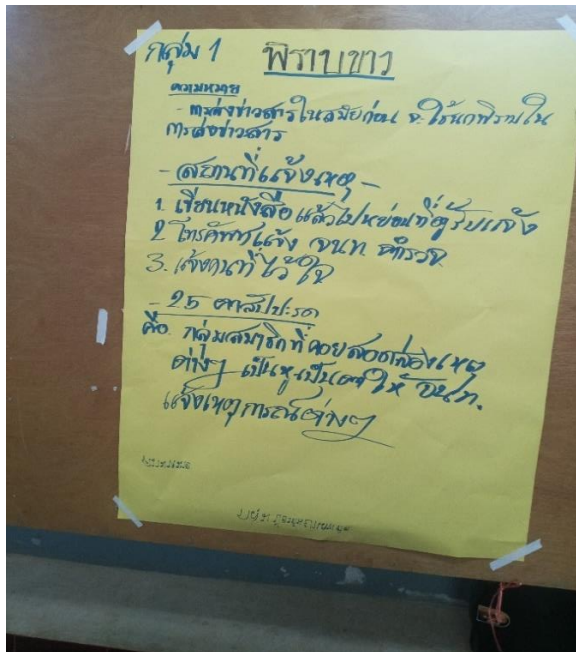 กลุ่ม 1
พิราบขาว
ความหมาย
- การส่งข่าวสารในสมัยก่อน จะใช้นกพิราบใน
การส่งข่าวสาร
- สถานที่แจ้งเหตุ -
1. เขียนหนังสือแล้วไปหย่อนที่ตู้รับแจ้ง
2 โทรศัพท์แจ้ง จนท. ตำรวจ
3. แจ้งคนที่ไว้ใจ
- 25 ตาสับปะรด
คือ กลุ่มสมาชิกที่คอยสอดส่องเหตุ
ต่างๆ เป็นหูเป็นตาให้ จนท.
แจ้งเหตุการณ์ต่างๆ